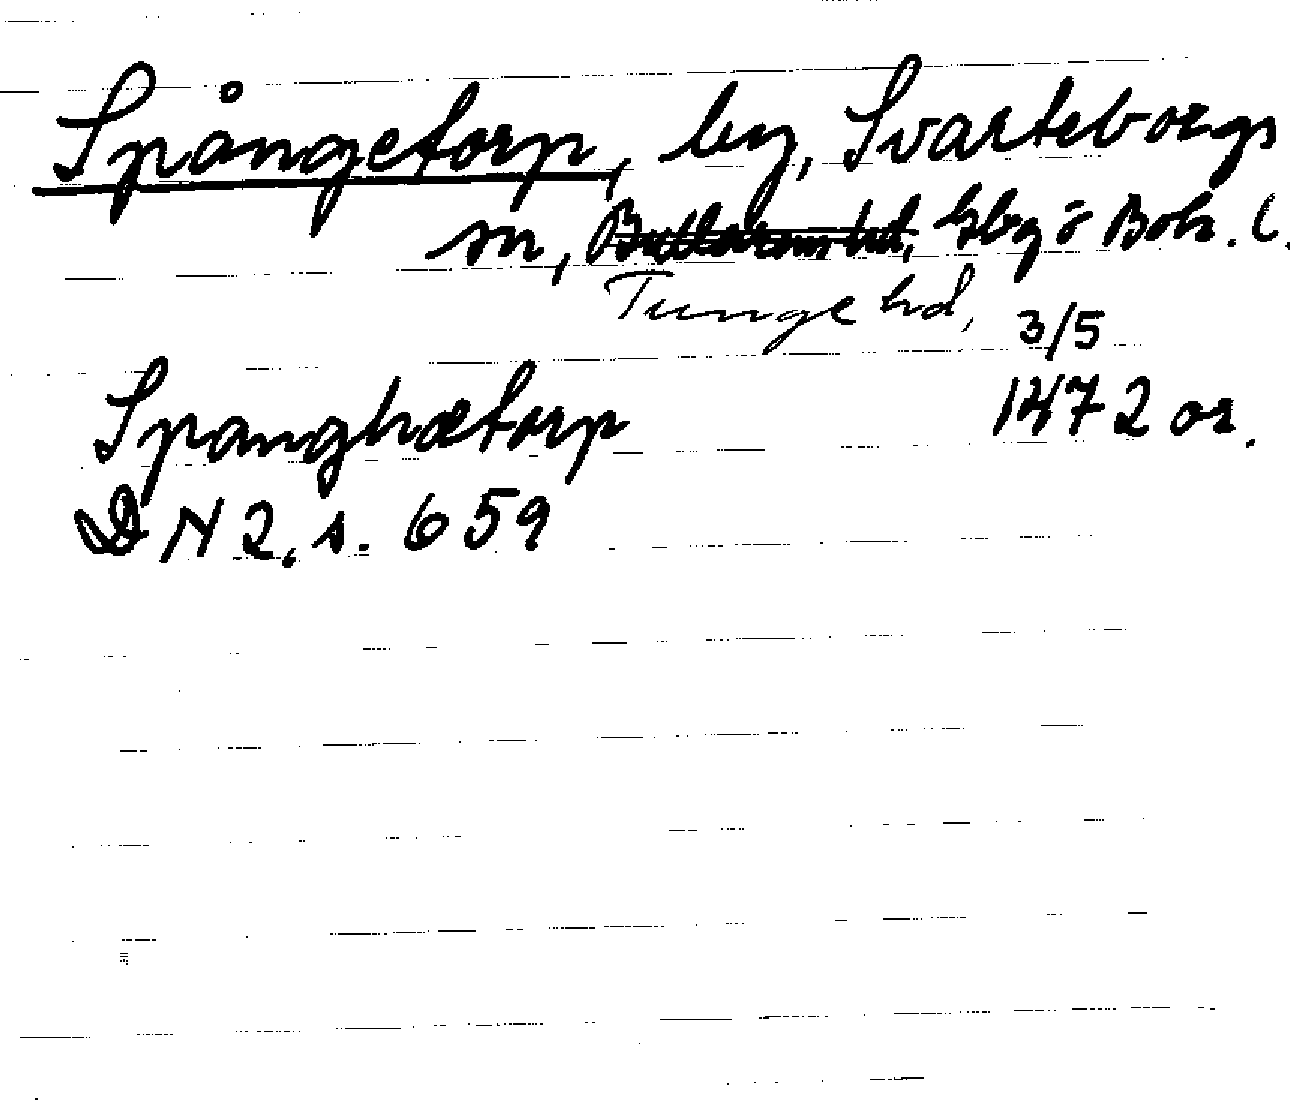 Spångetorp, by, Svarteborgs
sn, Bullarens hd, Gbg o Boh. l.
Tunge hd,
3/5
Spanghætorp 1472 or.
DN 2, s. 659